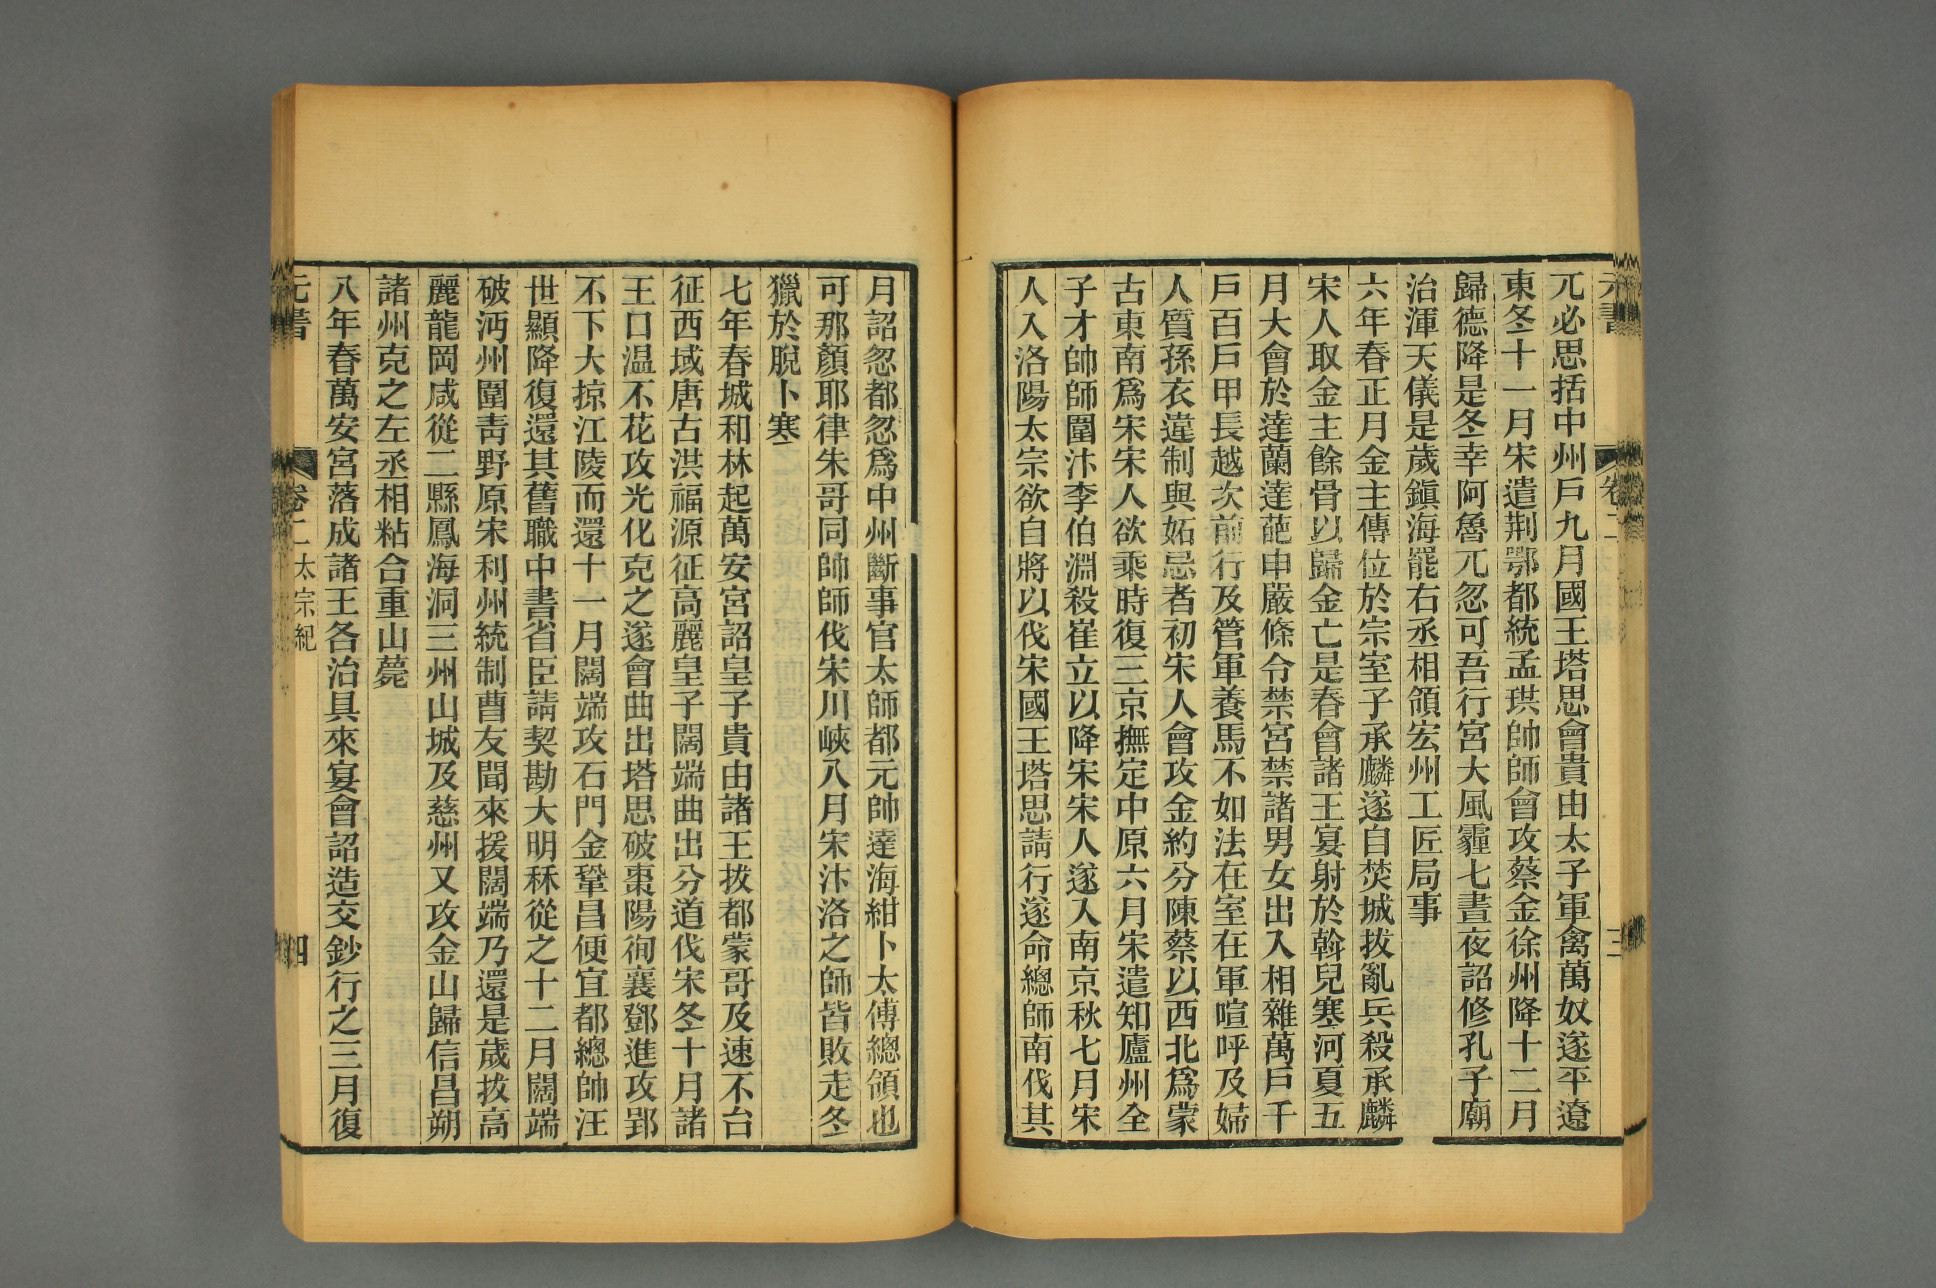 元書
卷二
三
兀必思括中州戶九月國王塔思會貴由太子軍禽萬奴遂平遼
東冬十一月宋遣荆鄂都統孟珙帥師會攻蔡金徐州降十二月
歸德降是冬幸阿魯兀忽可吾行宮大風霾七晝夜詔修孔子廟
治渾天儀是歲鎭海罷右丞相領宏州工匠局事
六年春正月金主傳位於宗室子承麟遂自焚城拔亂兵殺承麟
宋人取金主餘骨以歸金亡是春會諸王宴射於斡兒寒河夏五
月大會於達蘭達葩申嚴條令禁宮禁諸男女出入相雜萬戶千
戶百戶甲長越次前行及管軍養馬不如法在室在軍喧呼及婦
人質孫衣違制與妬忌者初宋人會攻金約分陳蔡以西北爲蒙
古東南爲宋宋人欲乘時復三京撫定中原六月宋遣知廬州全
子才帥師圍汴李伯淵殺崔立以降宋宋人遂入南京秋七月宋
人入洛陽太宗欲自將以伐宋國王塔思請行遂命總師南伐其
月詔忽都忽爲中州斷事官太師都元帥達海紺卜太傅總領也
可那顏耶律朱哥同帥師伐宋川峽八月宋汴洛之師皆敗走冬
獵於脫卜寒
七年春城和林起萬安宮詔皇子貴由諸王拔都蒙哥及速不台
征西域唐古洪福源征高麗皇子闊端曲出分道伐宋冬十月諸
王口温不花攻光化克之遂會曲出塔思破棗陽徇襄鄧進攻郢
不下大掠江陵而還十一月闊端攻石門金鞏昌便宜都總帥汪
世顯降復還其舊職中書省臣請契勘大明秝從之十二月闊端
破沔州圍靑野原宋利州統制曹友聞來援闊端乃還是歲拔高
麗龍岡咸從二縣鳳海洞三州山城及慈州又攻金山歸信昌朔
諸州克之左丞相粘合重山薨
八年春萬安宮落成諸王各治具來宴會詔造交鈔行之三月復
元書
卷二 太宗紀
四